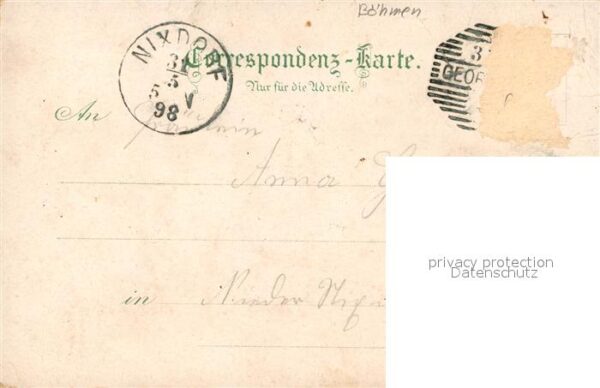 Böhmen
NIXDORF
31
5
5 V
98
Correspondenz-Karte.
Nur für die Adresse.
3
GEOR
An Fräulein
Anna
in Nieder Nix
privacy protection
Datenschutz